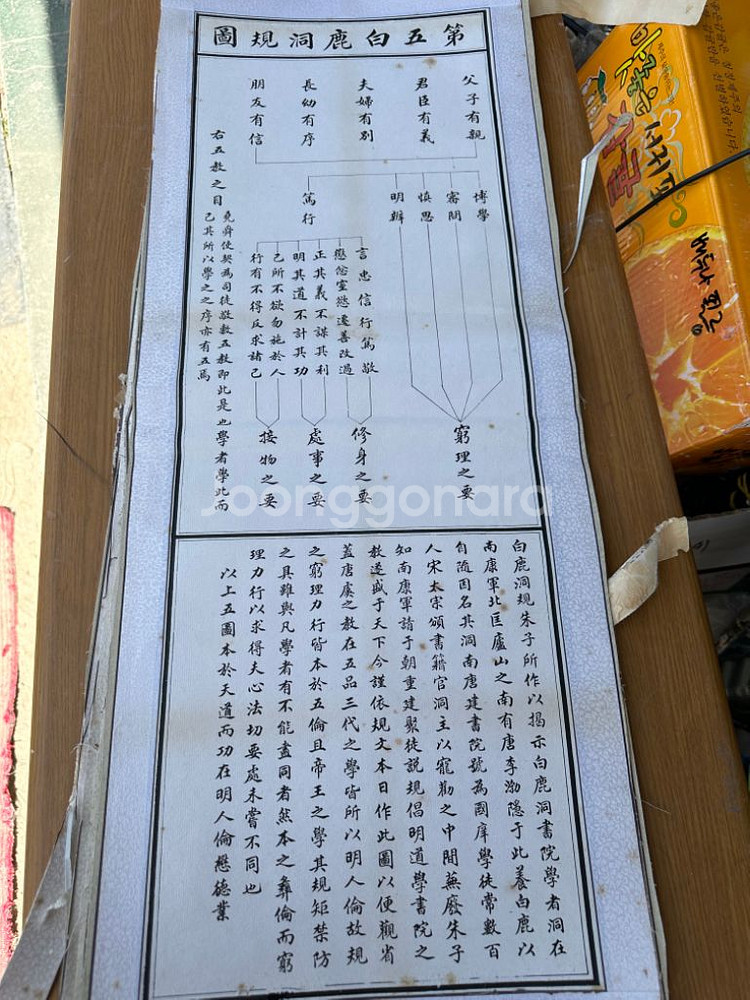 第五白鹿洞規圖
父子有親
君臣有義
夫婦有別
長幼有序
朋友有信
右五教之目
堯舜使契為司徒敬敷五教即此是也學者學此而
已其所以學之之序亦有五焉
博學
審問
慎思
明辨
篤行
言忠信行篤敬
懲忿窒慾遷善改過
正其義不謀其利
明其道不計其功
己所不欲勿施於人
行有不得反求諸己
窮理之要
修身之要
處事之要
接物之要
白鹿洞規朱子所作以揭示白鹿洞書院學者洞在
南康軍北匡廬山之南有唐李渤隱于此養白鹿以
自隨因名其洞南唐建書院號為國庠學徒常數百
人宋太宗頒書籍官洞主以寵勸之中間蕪廢朱子
知南康軍請于朝重建聚徒說規倡明道學書院之
教遂盛于天下今謹依規文本日作此圖以便觀省
蓋唐虞之教在五品三代之學皆所以明人倫故規
之窮理力行皆本於五倫且帝王之學其規矩禁防
之具雖與凡學者有不能盡同者然本之彝倫而窮
理力行以求得夫心法切要處未嘗不同也
以上五圖本於天道而功在明人倫懋德業
Joonggonara